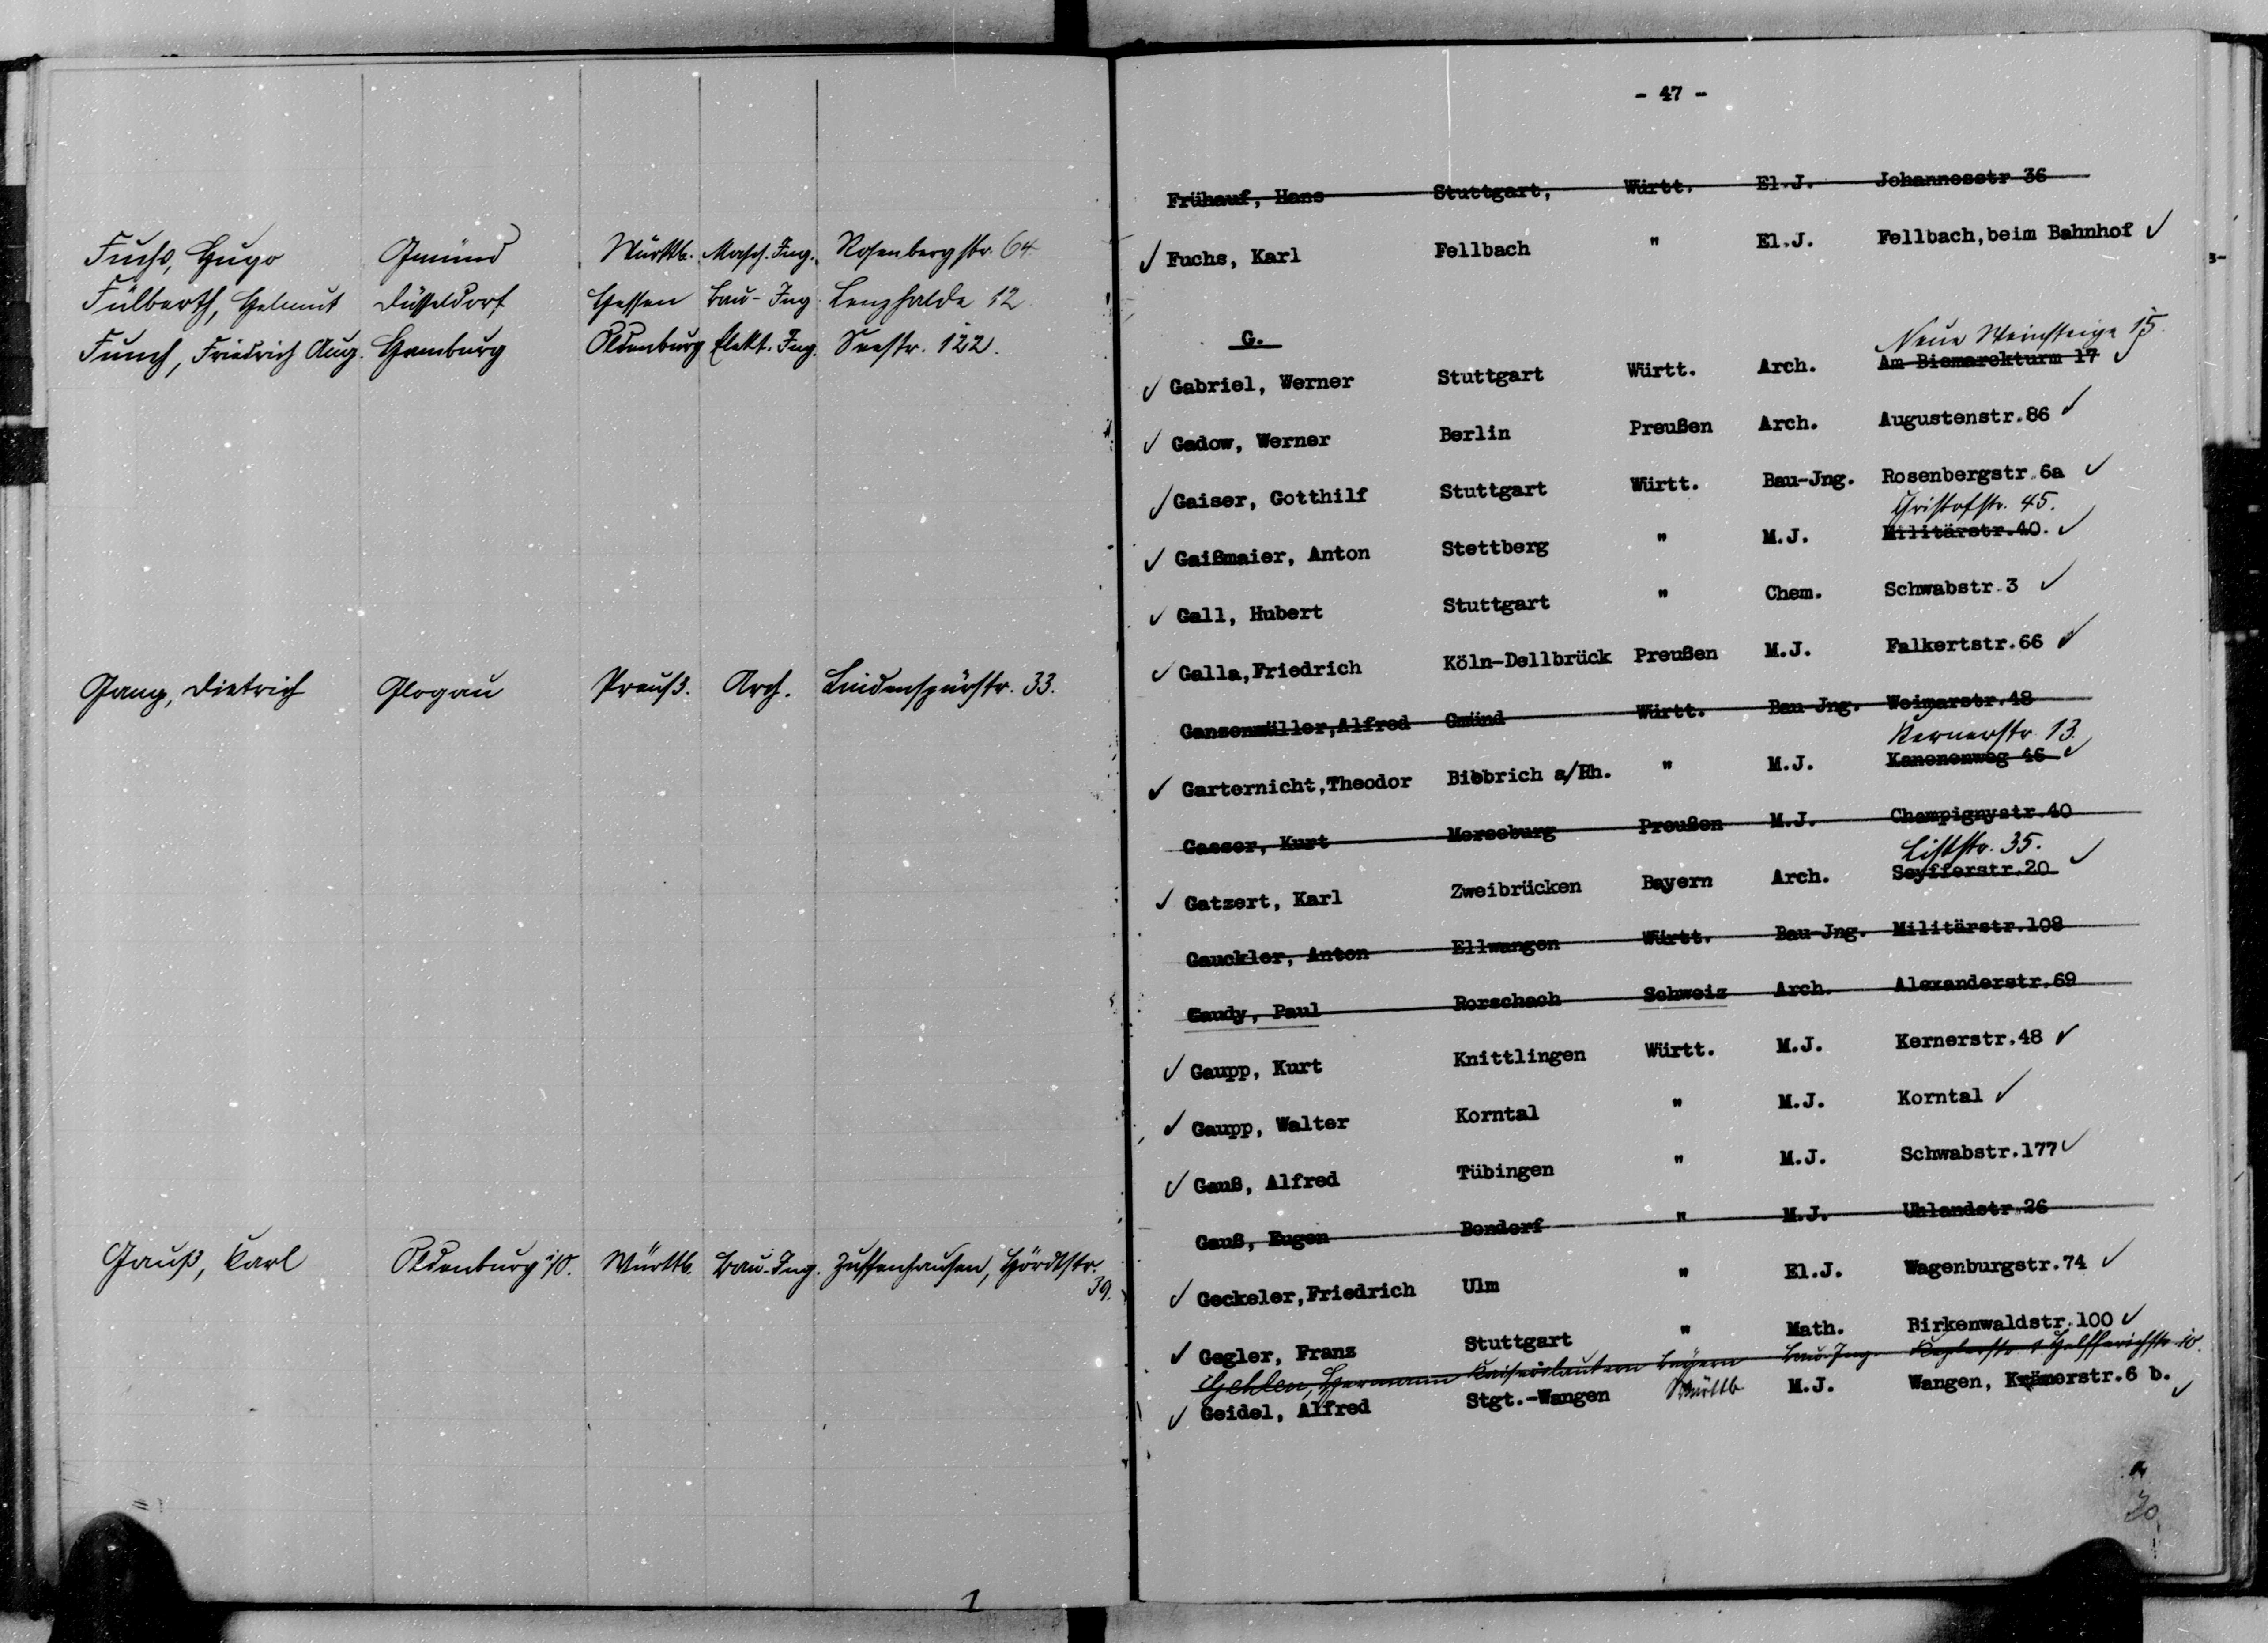 Fuchs, Hugo Gmünd Württb. Masch. Ing. Rosenbergstr. 64
Fülberth, Helmut Düsseldorf Hessen Bau-Ing Lenzhalde 12
Funch, Friedrich Aug. Hamburg Oldenburg Elekt. Ing. Seestr. 122.
Gang, Dietrich Glogau Preuß. Arch. Lindenspürstr. 33.
Gauß, Karl Oldenburg i/O. Württb. Bau-Ing. Zuffenhausen, Hördtstr.
39.
1
- 47 -
Frühauf, Hans Stuttgart, Württ. El.J. Johannesstr 36
✓ Fuchs, Karl Fellbach " El.J. Fellbach, beim Bahnhof ✓
G.
Neue Weinsteige 15.
✓ Gabriel, Werner Stuttgart Württ. Arch. Am Bismarckturm 17 ✓
✓ Gadow, Werner Berlin Preußen Arch. Augustenstr.86 ✓
✓ Gaiser, Gotthilf Stuttgart Württ. Bau-Jng. Rosenbergstr.6a ✓
Christofstr. 45.
✓ Gaißmaier, Anton Stettberg " M.J. Militärstr.40. ✓
✓ Gall, Hubert Stuttgart " Chem. Schwabstr.3 ✓
✓ Galla,Friedrich Köln-Dellbrück Preußen M.J. Falkertstr.66 ✓
Gansenmüller,Alfred Gmünd Württ. Bau Jng. Weimarstr.48
Kernerstr 13.
✓ Garternicht,Theodor Biebrich a/Rh. " M.J. Kanonenweg 46 ✓
Gasser, Kurt Merseburg Preußen M.J. Champignystr.40
Liststr. 35.
✓ Gatzert, Karl Zweibrücken Bayern Arch. Seyfferstr.20 ✓
Gauckler, Anton Ellwangen Württ. Bau-Jng. Militärstr.108
Gaudy, Paul Rorschach Schweiz Arch. Alexanderstr.69
✓ Gaupp, Kurt Knittlingen Württ. M.J. Kernerstr.48 ✓
✓ Gaupp, Walter Korntal " M.J. Korntal ✓
✓ Gauß, Alfred Tübingen " M.J. Schwabstr.177 ✓
Gauß, Eugen Bondorf " M.J. Uhlandstr 26
✓ Geckeler,Friedrich Ulm " El.J. Wagenburgstr.74 ✓
✓ Gegler, Franz Stuttgart " Math. Birkenwaldstr.100 ✓
Gehlen, Hermann Kaiserslautern Bayern Bau-Ing. Helfferichstr 10.
✓ Geidel, Alfred Stgt.-Wangen Württb M.J. Wangen, Krämerstr.6 b. ✓